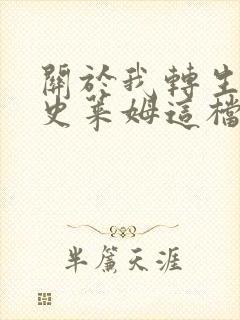 關於我轉生
史萊姆這檔
半簾天涯